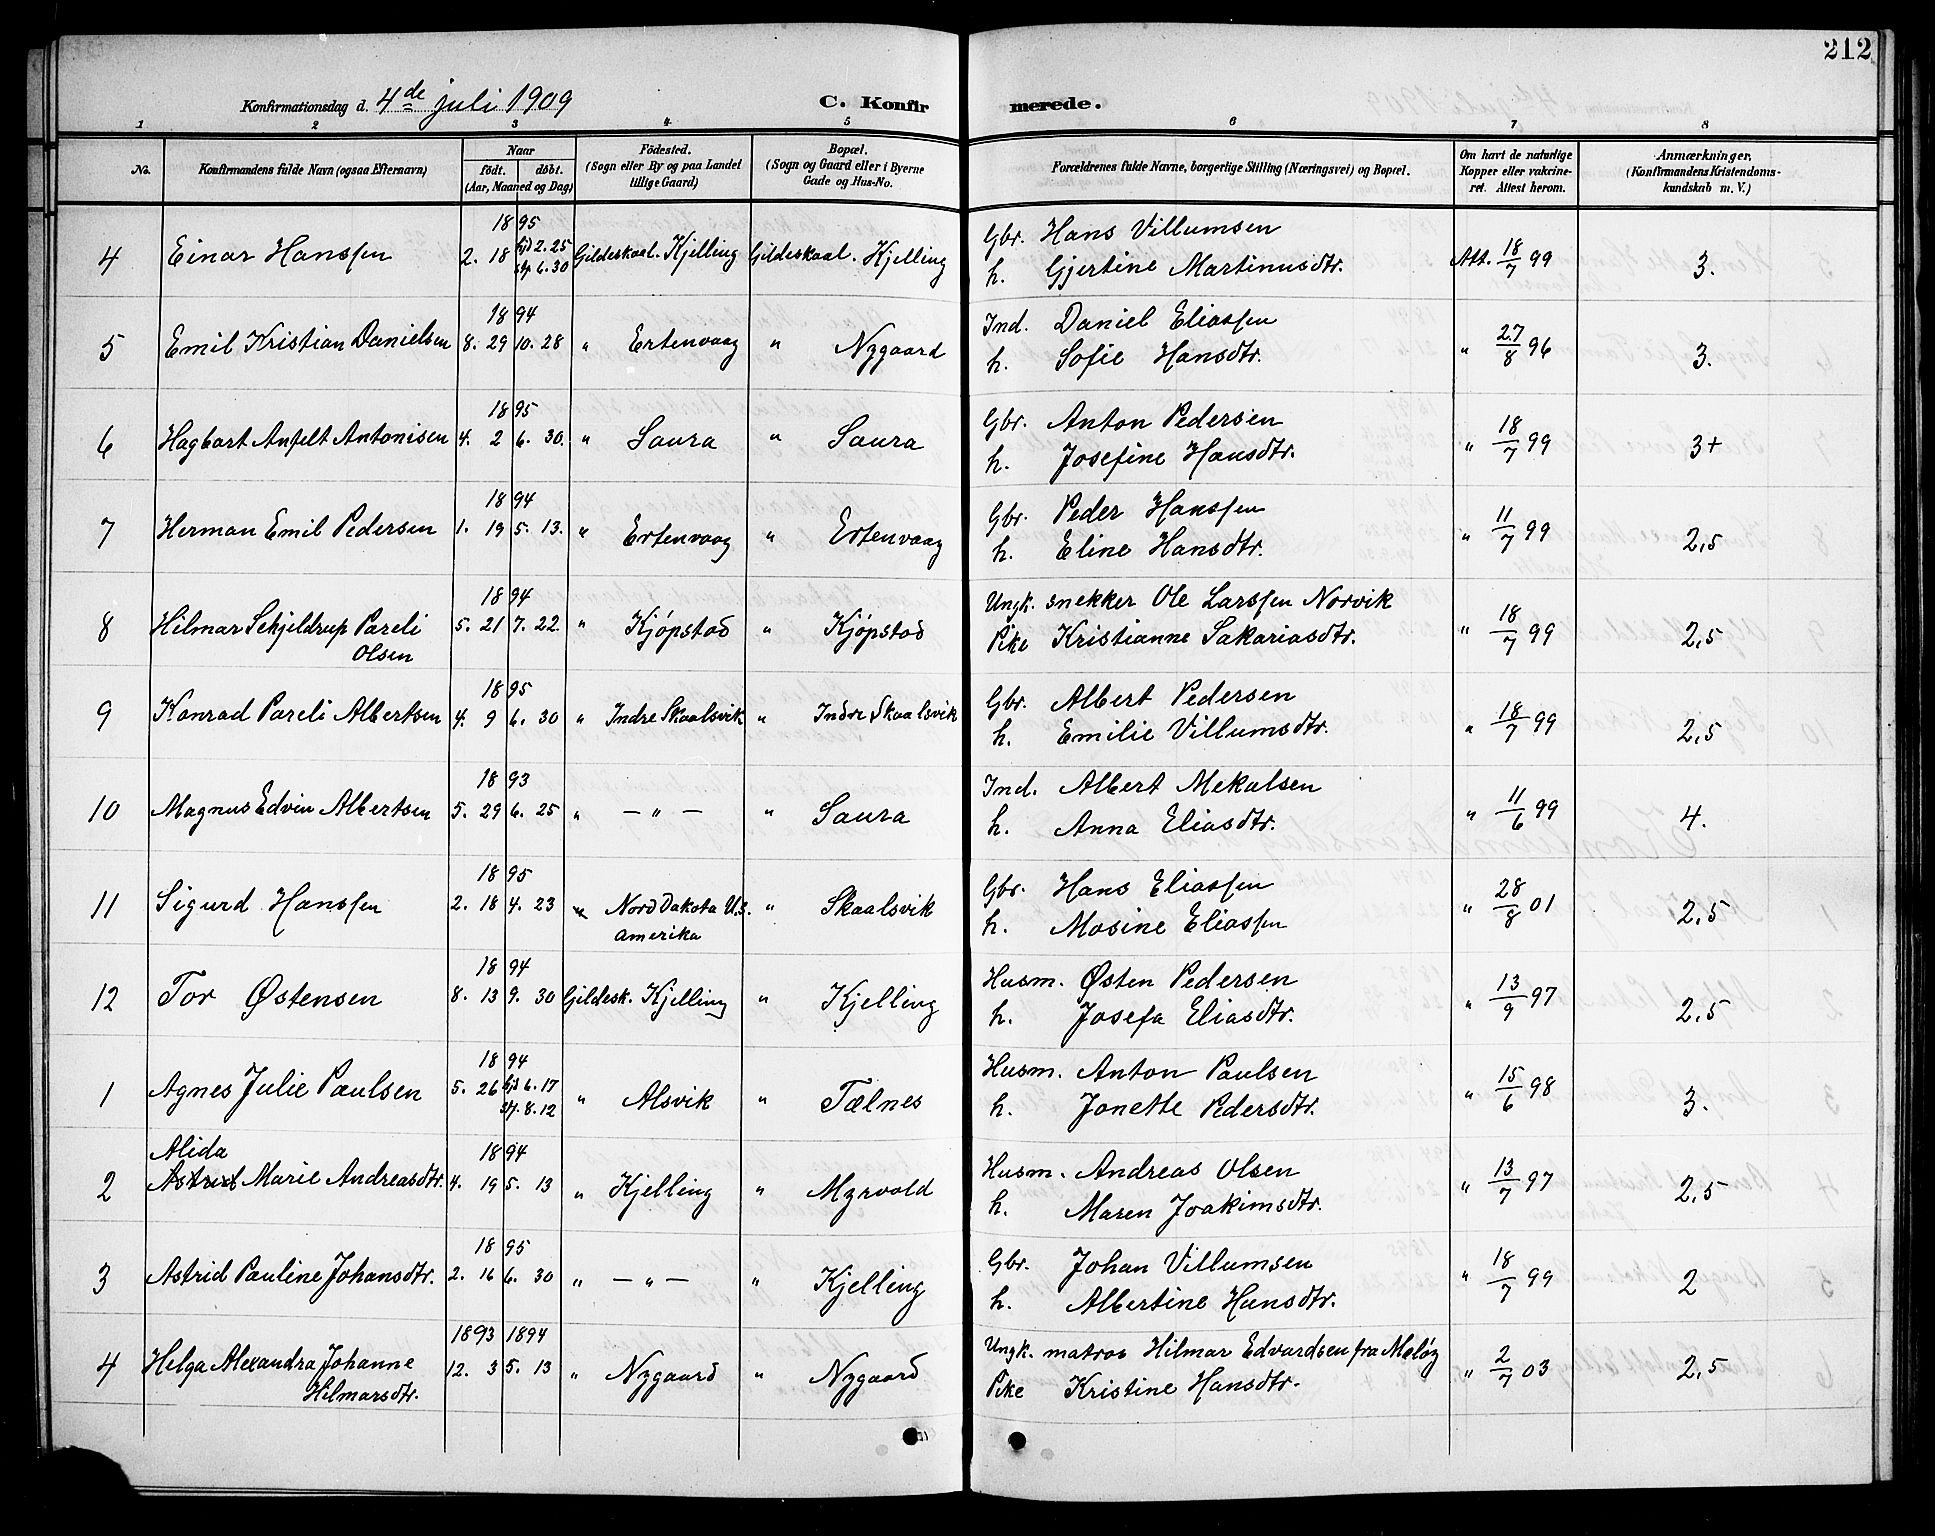 212
Konfirmationsdag d. 4de juli 1909 C. Konfirmerede.
1 2 3 4 5 6 7 8
No. Konfirmandens fulde Navn (ogsaa Efternavn) Naar födt. döbt. (Aar, Maaned og Dag) Födested. (Sogn eller By og paa Landet tillige Gaard) Bopæl. (Sogn og Gaard eller i Byerne Gade og Hus-No. Forældrenes fulde Navne, borgerlige Stilling (Næringsvei) og Bopæl. Om havt de naturlige Kopper eller vakcineret. Attest herom. Anmærkninger. (Konfirmandens Kristendomskundskab m. V.)
1895
4 Einar Hanssen 2. 18 hjd 2. 25 st 6. 30 Gildeskaal. Kjelling Gildeskaal. Kjelling Gbr. Hans Villumsen Att. 18/7 99 3.
h. Gjertine Martinusdtr.
1894
5 Emil Kristian Danielsen 8. 29 10. 28 " Ertenvaag " Nygaard Ind. Daniel Eliassen " 27/8 96 3.
h. Sofie Hansdtr.
1895
6 Hagbart Anfelt Antonisen 4. 2 6. 30. " Saura " Saura Gbr. Anton Pedersen " 18/7 99 3+
h. Josefine Hansdtr.
1894
7 Herman Emil Pedersen 1. 19 5. 13. " Ertenvaag " Ertenvaag Gbr. Peder Hanssen " 11/7 99 2,5
h. Eline Hansdtr.
1894
8 Hilmar Schjeldrup Pareli 5. 21 7. 22. " Kjøpstad " Kjøpstad Ungk. snekker Ole Larssen Norvik " 18/7 99 2,5
Olsen Pike Kristianne Sakariasdtr.
1895
9 Konrad Pareli Albertsen 4. 9 6. 30 " Indre Skaalsvik " Indre Skaalsvik Gbr. Albert Pedersen " 18/7 99 2,5
h. Emilie Villumsdtr.
1893
10 Magnus Edvin Albertsen 5. 29 6. 25 " — " — " Saura Ind. Albert Mekalsen " 11/6 99 4.
h. Anna Eliasdtr.
1895
11 Sigurd Hanssen 2. 18 4. 23 Nord Dakota U.S. " Skaalsvik Gbr. Hans Eliassen " 28/8 01 2,5
Amerika h. Mosine Eliassen
1894
12 Tor Østensen 8. 13 9. 30 Gildesk. Kjelling " Kjelling Husm. Østen Pedersen " 13/9 97 2,5
h. Josefa Eliasdtr.
1894
1 Agnes Julie Paulsen 5. 26 hjd 6. 17 st. 8. 12 " Alsvik " Tælnes Husm. Anton Paulsen " 15/6 98 3.
h. Jonette Pedersdtr.
Alida 1894
2 Astrid Marie Andreasdtr. 4. 19 5. 13 " Kjelling " Myrvold Husm. Andreas Olsen " 13/7 97 2,5
h. Maren Joakimsdtr.
1895
3 Astrid Pauline Johansdtr. 2. 16 6. 30 " — " — " Kjelling Gbr. Johan Villumsen " 18/7 99 2
h. Albertine Hansdtr.
1893 1894
4 Helga Alexandra Johanne 12. 3 5. 13 " Nygaard " Nygaard Ungk. matros Hilmar Edvardsen fra Meløy " 2/7 03 2,5
Hilmarsdtr. Pike Kristine Hansdtr.